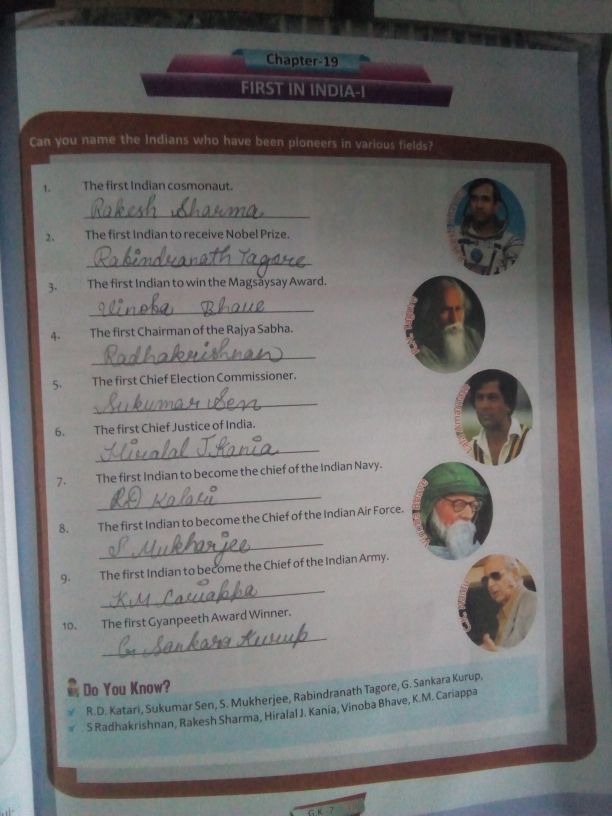 Chapter-19
FIRST IN INDIA-I
Can you name the Indians who have been pioneers in various fields?
1. The first Indian cosmonaut.
Rakesh Sharma
2. The first Indian to receive Nobel Prize.
Rabindranath Tagore
3. The first Indian to win the Magsaysay Award.
Vinoba Bhave
4. The first Chairman of the Rajya Sabha.
Radhakrishnan
5. The first Chief Election Commissioner.
Sukumar Sen
6. The first Chief Justice of India.
Hiralal J. Kania
7. The first Indian to become the chief of the Indian Navy.
RD Katari
8. The first Indian to become the Chief of the Indian Air Force.
S Mukharjee
9. The first Indian to become the Chief of the Indian Army.
K.M Cariappa
10. The first Gyanpeeth Award Winner.
G Sankara Kurup
Do You Know?
R.D. Katari, Sukumar Sen, S. Mukherjee, Rabindranath Tagore, G. Sankara Kurup,
S Radhakrishnan, Rakesh Sharma, Hiralal J. Kania, Vinoba Bhave, K.M. Cariappa
G.K-7